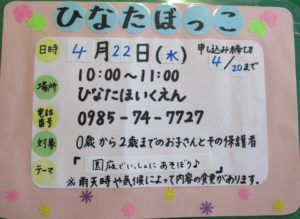 ひなたぼっこ
日時 4月22日(水) 申し込み締切
4/20まで
10:00~11:00
場所 ひなたほいくえん
電話番号 0985-74-7727
対象 0歳から2歳までのお子さんとその保護者
テーマ 園庭でいっしょにあそぼう♪
※雨天時や気候によって内容の変更があります。